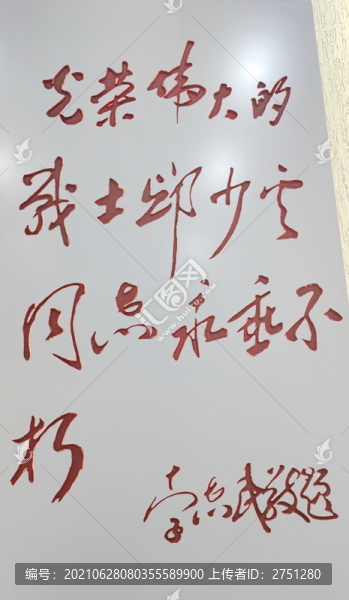 光荣伟大的
战士邱少云
同志永垂不
朽
李志民敬题
编号：20210628080355589900 上传者ID：2751280